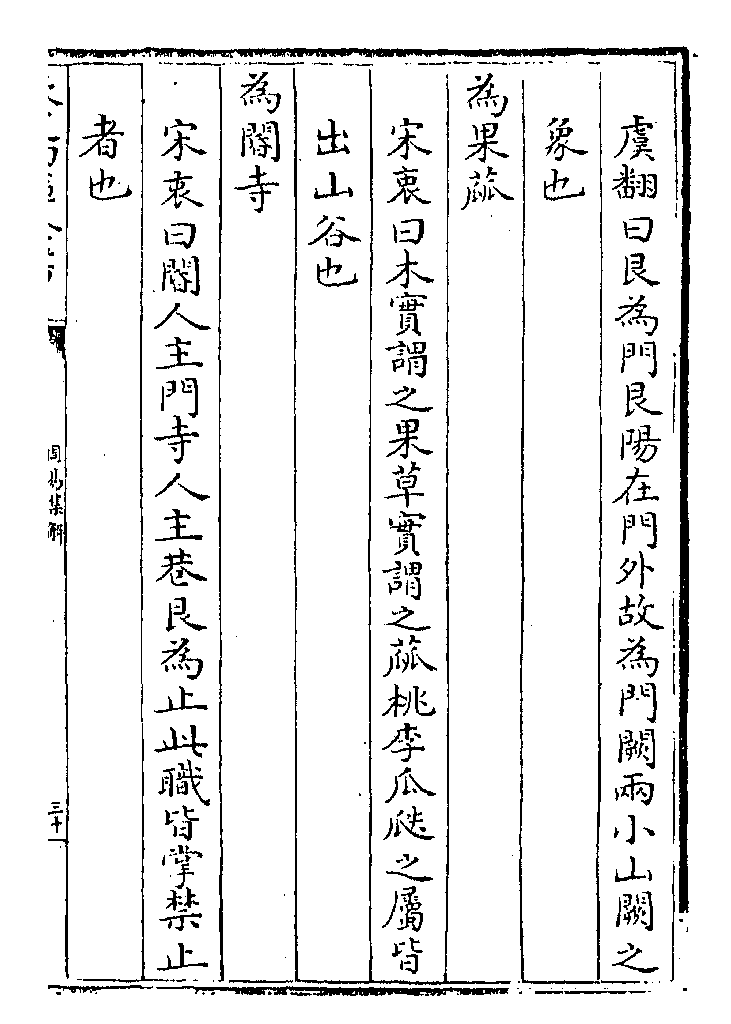 虞翻曰艮為門艮陽在門外故為門闕兩小山闕之
象也
為果蓏
宋衷曰木實謂之果草實謂之蓏桃李瓜瓞之屬皆
出山谷也
為閽寺
宋衷曰閽人主門寺人主巷艮為止此職皆掌禁止
者也
周易集解
三十